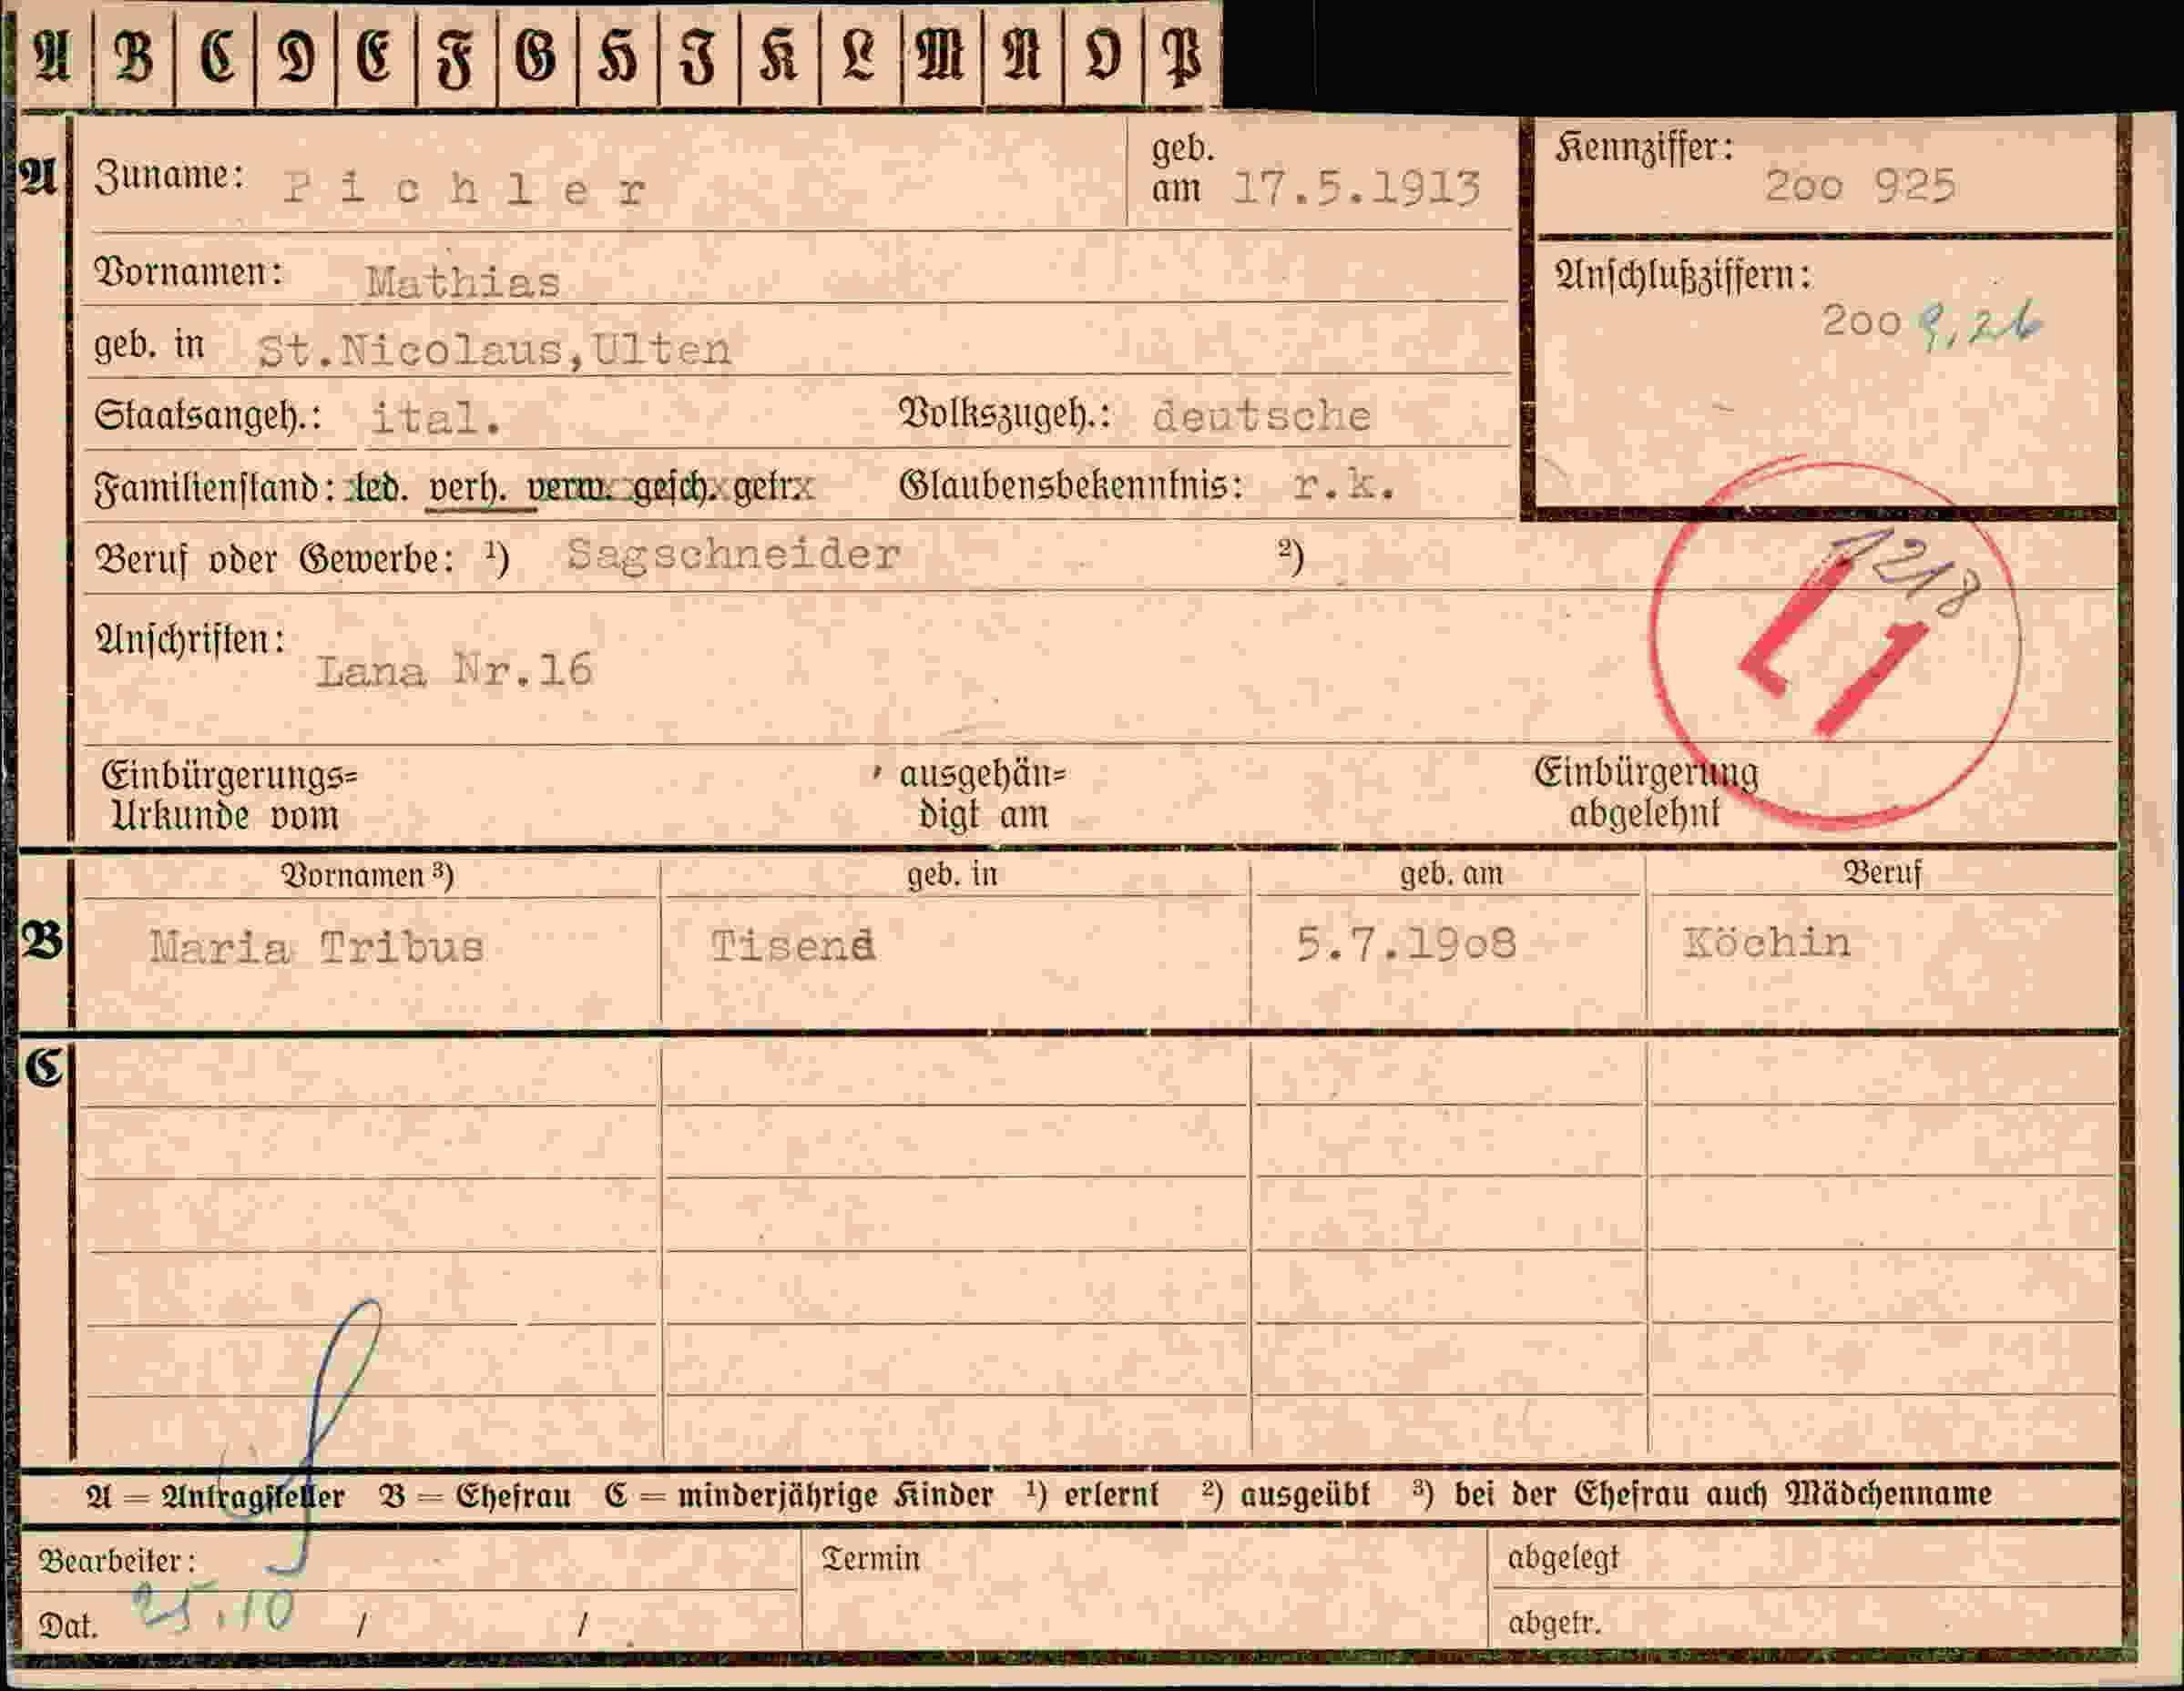 A B C D E F G H I K L M N O P
A Zuname: Pichler geb. am 17.5.1913 Kennziffer: 2oo 925
Vornamen: Mathias Anschlußziffern: 2oo 9,26
geb. in St.Nicolaus,Ulten
Staatsangeh.: ital. Volkszugeh.: deutsche
Familienstand: led. verh. verw. gesch. getr. Glaubensbekenntnis: r.k.
Beruf oder Gewerbe: ¹) Sagschneider ²)
1218
L1
Anschriften: Lana Nr.16
Einbürgerungs=
Urkunde vom
ausgehän=
digt am
Einbürgerung
abgelehnt
Vornamen ³) geb. in geb. am Beruf
B Maria Tribus Tisens 5.7.19o8 Köchin
C
A = Antragsteller B = Ehefrau C = minderjährige Kinder ¹) erlernt ²) ausgeübt ³) bei der Ehefrau auch Mädchenname
Bearbeiter: Termin abgelegt
Dat. 25.10 / / abgetr.